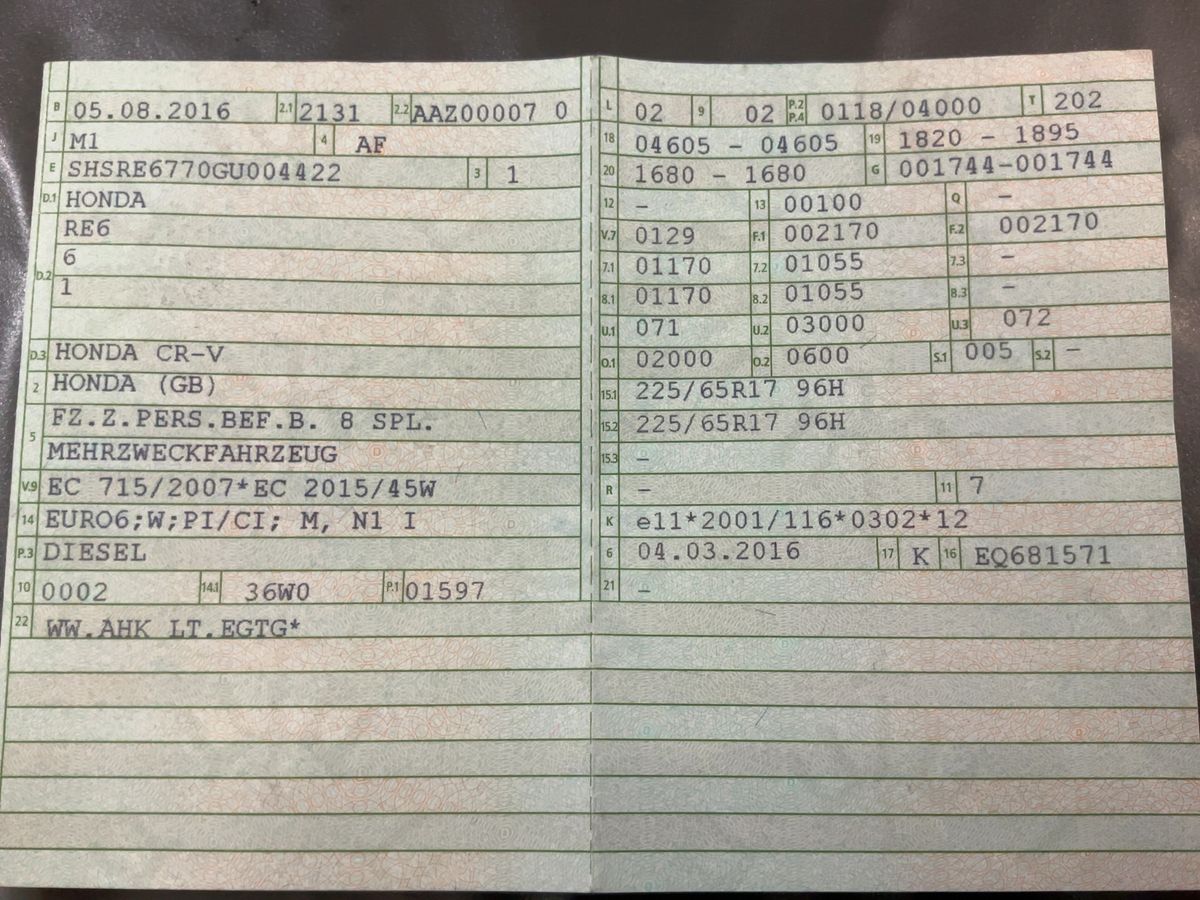 B 05.08.2016 2.1 2131 2.2 AAZ00007 0
J M1 4 AF
E SHSRE6770GU004422 3 1
D.1 HONDA
D.2 RE6
6
1
D.3 HONDA CR-V
2 HONDA (GB)
5 FZ.Z.PERS.BEF.B. 8 SPL.
MEHRZWECKFAHRZEUG
V.9 EC 715/2007*EC 2015/45W
14 EURO6;W;PI/CI; M, N1 I
P.3 DIESEL
10 0002 14.1 36W0 P.1 01597
22 WW.AHK LT.EGTG*
L 02 9 02 P.2 P.4 0118/04000 T 202
18 04605 - 04605 19 1820 - 1895
20 1680 - 1680 G 001744-001744
12 - 13 00100 Q -
V.7 0129 F.1 002170 F.2 002170
7.1 01170 7.2 01055 7.3 -
8.1 01170 8.2 01055 8.3 -
U.1 071 U.2 03000 U.3 072
O.1 02000 O.2 0600 S.1 005 S.2 -
15.1 225/65R17 96H
15.2 225/65R17 96H
15.3 -
R - 11 7
K e11*2001/116*0302*12
6 04.03.2016 17 K 16 EQ681571
21 -